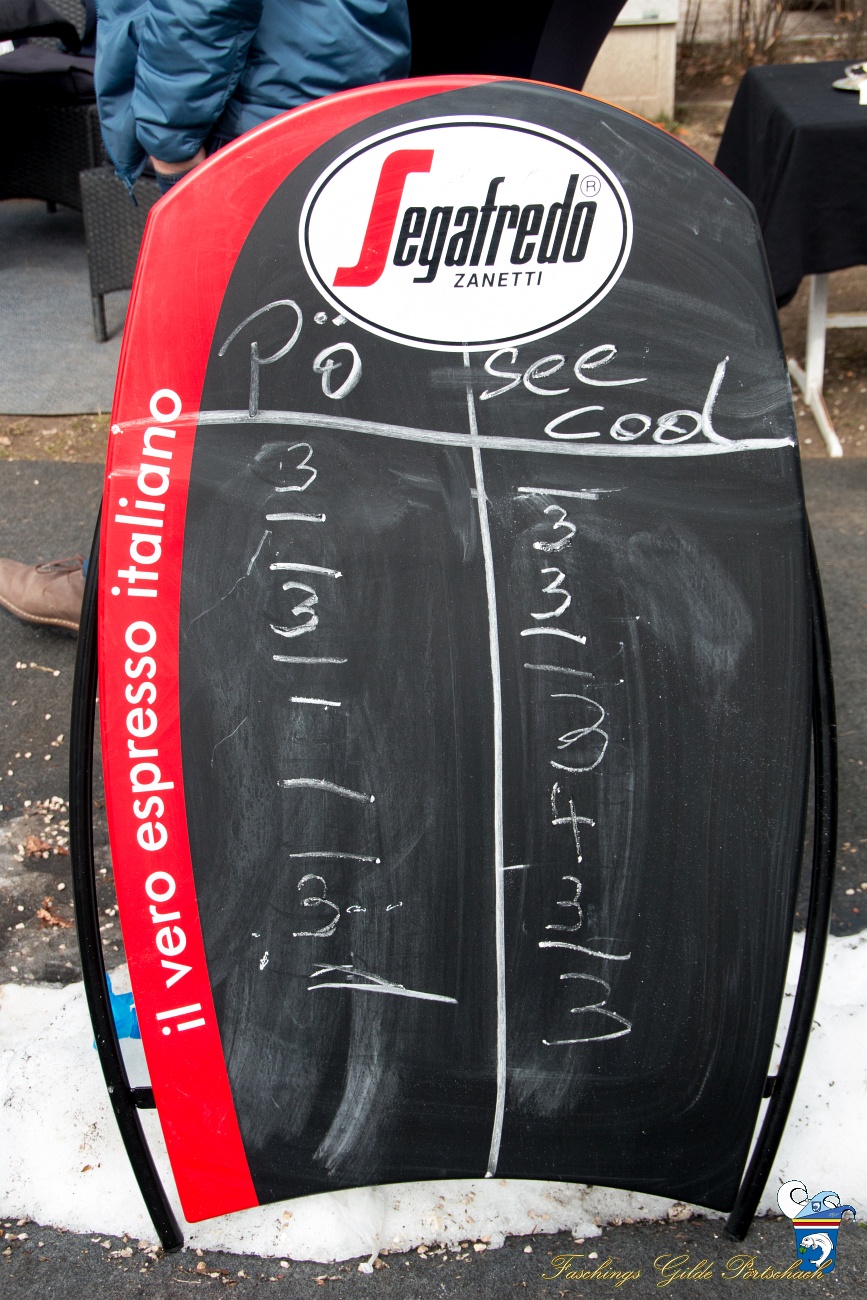 Segafredo®
ZANETTI
Pö
see
cool
il vero espresso italiano
3 | | 3 | | | | 3 |
| 3 3 | | 3 + 3 | 3
Faschings Gilde Pörtschach